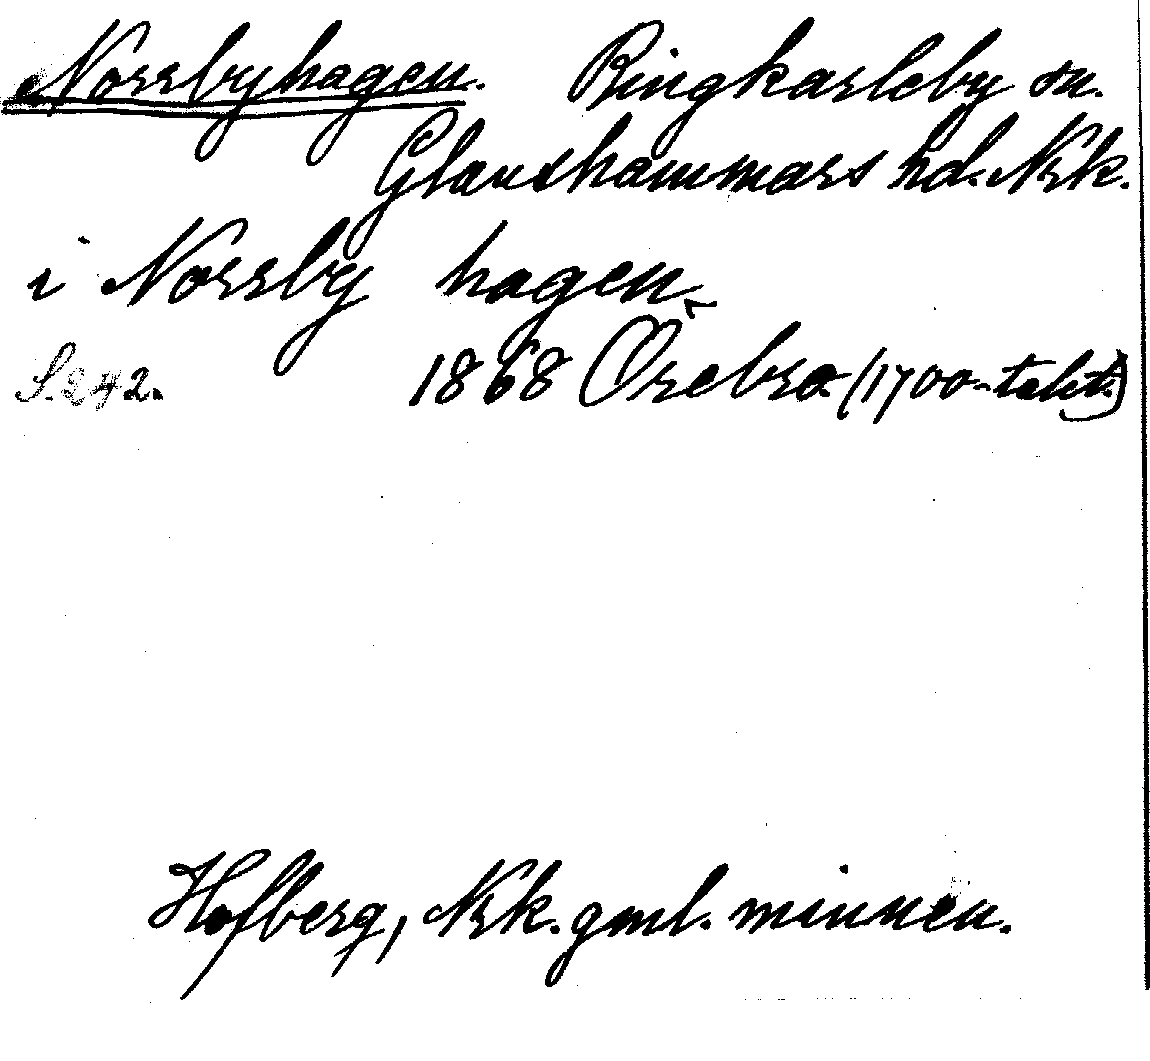 Norrbyhagen. Ringkarleby sn.
Glanshammars hd. Nrk.
i Norrby hagen
S. 242. 1868 Örebro (1700-talet)
Hofberg, Nrk. gml. minnen.